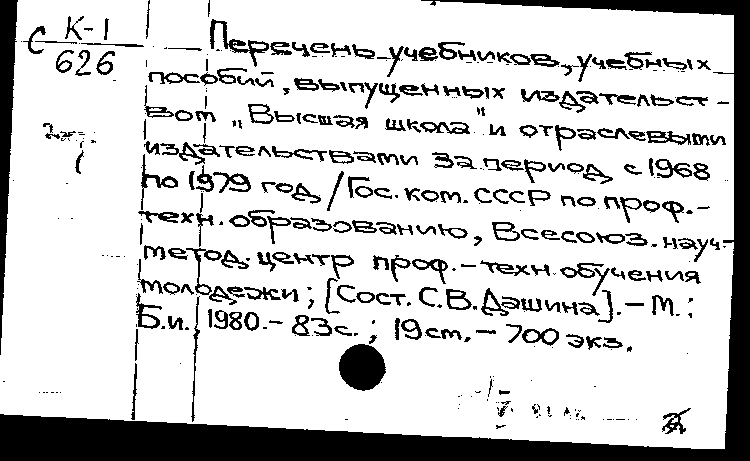 С К-1
626
Перечень учебников, учебных
пособий, выпущенных издательст-
вом „Высшая школа" и отраслевыми
издательствами за период с 1968
по 1979 год / Гос. ком. СССР по проф.-
техн. образованию, Всесоюз. науч.-
метод. центр проф.-техн. обучения
молодежи; [Сост. С.В. Дашина]. - М.:
Б.и., 1980. - 83с.; 19 см. - 700 экз.